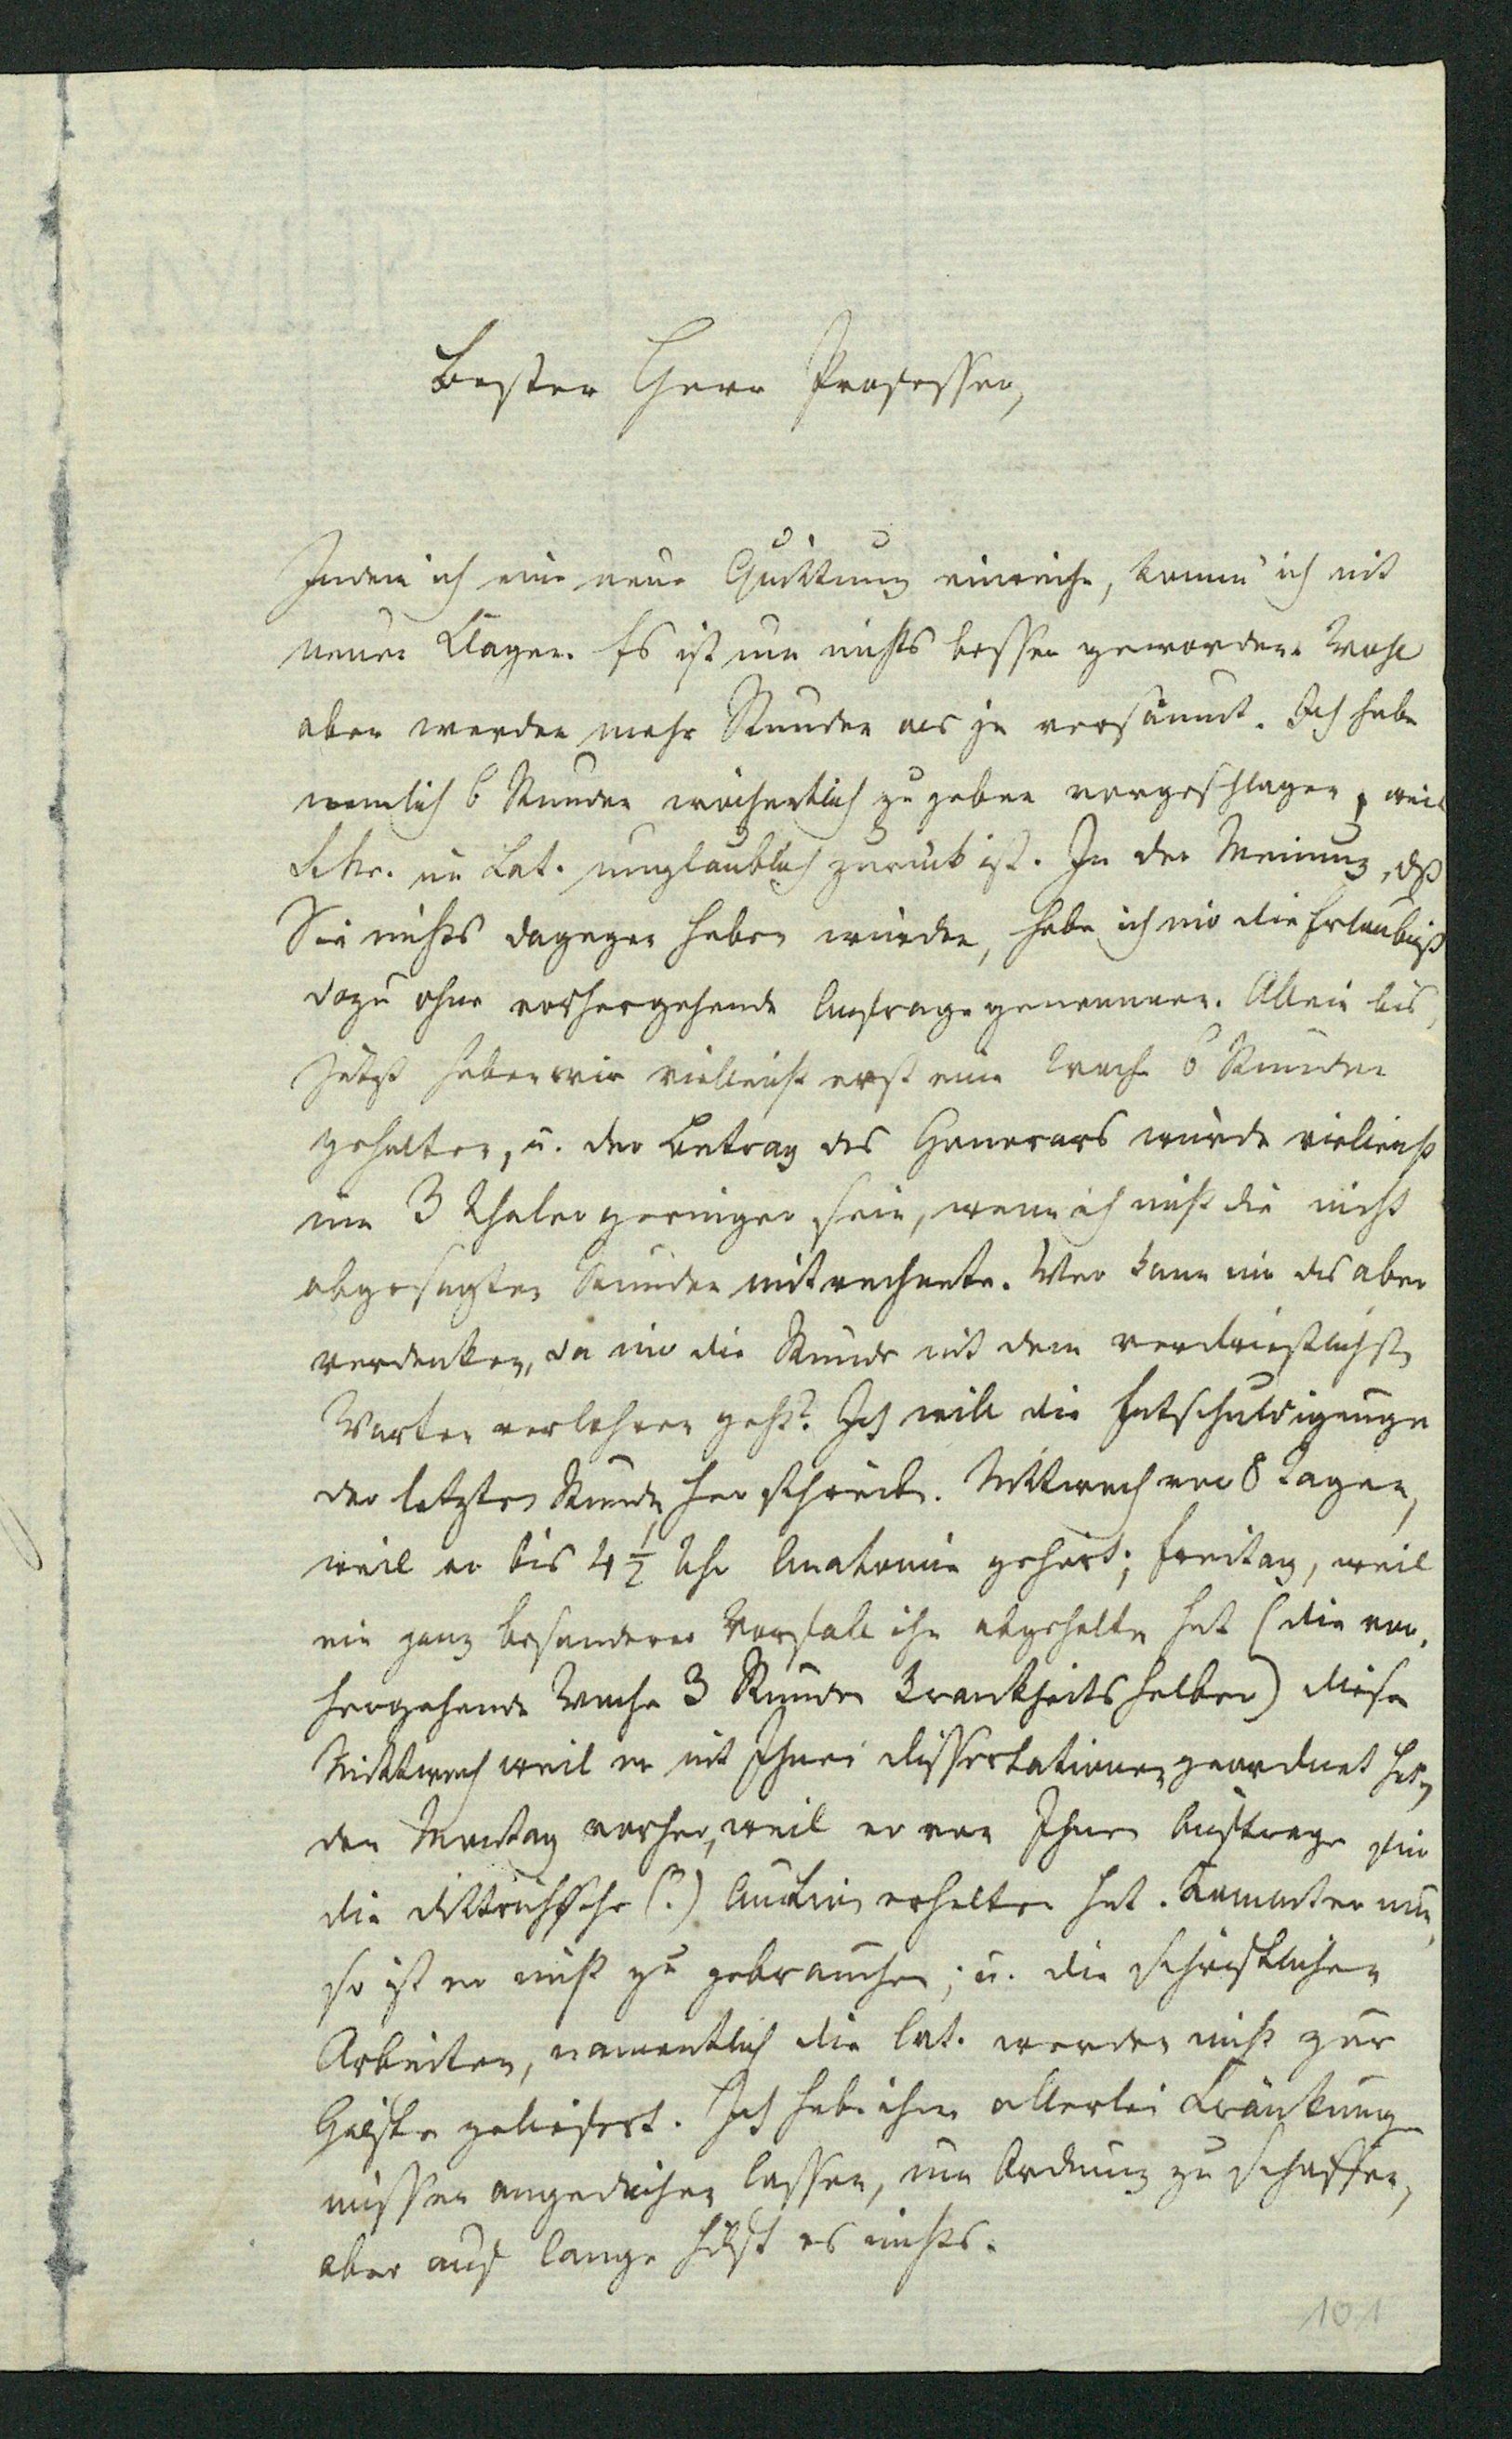 Bester Herr Professor,
Indem ich eine neue Quittung einreiche, komm' ich mit
neuen Klagen. Es ist um nichts besser geworden. Wohl
aber werden mehr Stunden als je versäumt. Ich habe
nemlich 6 Stunden wöchentlich zu geben vorgeschlagen, weil
im Lat. unglaublich zurück ist. In der Meinung, dß
Sie nichts dagegen haben würden, habe ich mir die Erlaubniß
dazu ohne vorhergehende Anfrage genommen. Allein bis
jetzt haben wir vielleicht erst eine Woche 6 Stunden
gehalten, u. der Betrag des Honorars würde vielleicht
um 3 Thaler geringer sein, wenn ich nicht die nicht
abgesagten Stunden mitrechnete. Wer kann mir das aber
verdenken, da mir die Stunde mit dem verdrießlichsten
Warten verlohren geht? Ich will die Entschuldigungen
der letzten Stunden her schreiben. Mittwoch vor 8 Tagen,
weil er bis 4 1/2 Uhr Anatomie gehört; Freitag, weil
ein ganz besonderer Vorfall ihn abgehalten hat (die vor-
hergehende Woche 3 Stunden Krankheits halber) diesen
Mittwoch weil er mit Ihnen Dissertationen geordnet hat,
den Montag vorher, weil er von Ihnen Aufträge für
die Dittrichsche (?) Auktion erhalten hat. Kommt er nun,
so ist er nicht zu gebrauchen; u. die schriftlichen
Arbeiten, namentlich die lat. werden nicht zur
Hälfte geliefert. Ich habe ihm allerlei Kränkung
müssen angedeihen lassen, um Ordnung zu schaffen,
aber auf lange hilft es nichts.
101